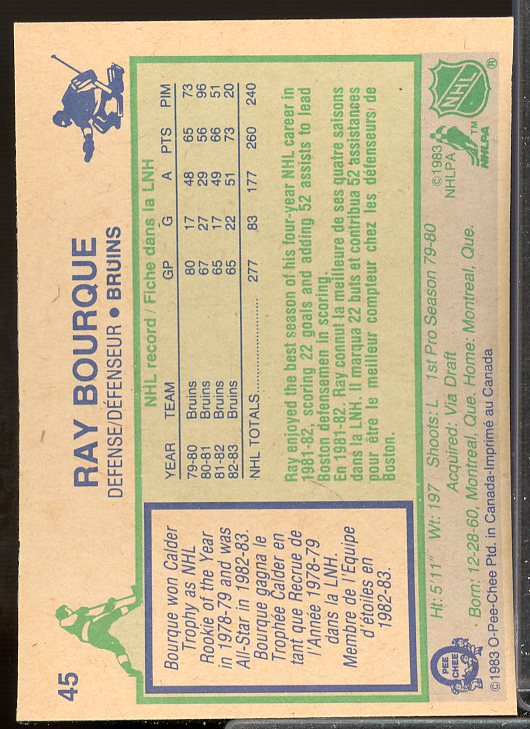 45
RAY BOURQUE
DEFENSE/DÉFENSEUR • BRUINS
Bourque won Calder
Trophy as NHL
Rookie of the Year
in 1978-79 and was
All-Star in 1982-83.
Bourque gagna le
Trophée Calder en
tant que Recrue de
l'Année 1978-79
dans la LNH.
Membre de l'Equipe
d'étoiles en
1982-83.
NHL record / Fiche dans la LNH
YEAR TEAM GP G A PTS PIM
79-80 Bruins 80 17 48 65 73
80-81 Bruins 67 27 29 56 96
81-82 Bruins 65 17 49 66 51
82-83 Bruins 65 22 51 73 20
NHL TOTALS.................. 277 83 177 260 240
Ray enjoyed the best season of his four-year NHL career in
1981-82, scoring 22 goals and adding 52 assists to lead
Boston defensemen in scoring.
En 1981-82. Ray connut la meilleure de ses quatre saisons
dans la LNH. Il marqua 22 buts et contribua 52 assistances
pour être le meilleur compteur chez les défenseurs de
Boston.
Ht: 5'11" Wt: 197 Shoots: L 1st Pro Season 79-80
Acquired: Via Draft
Born: 12-28-60, Montreal, Que. Home: Montreal, Que.
©1983 O-Pee-Chee Ptd. in Canada-Imprimé au Canada
O PEE CHEE
©1983
NHLPA
NHLPA ™
NHL ®